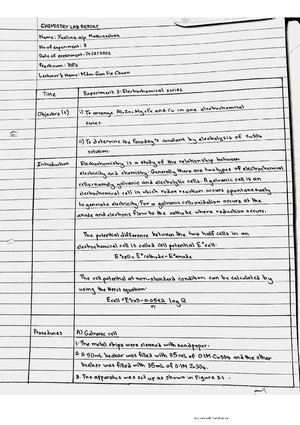 CHEMISTRY LAB REPORT
Name: Yeshina a/p
No of experiment: 3
Date of experiment: 14/2/2022
Practicum: H1P2
Lecturer's Name: Mdm Gan Fie Chuen
Title Experiment 3: Electrochemical series
Objective (s) i) To arrange Al, Zn, Mg, Fe and Cu in one electrochemical
series.
ii) To determine the Faraday's constant by electrolysis of CuSO4
solution.
Introduction Electrochemistry is a study of the relationship between
electricity and chemistry. Generally there are two types of electrochemical
cells namely, galvanic and electrolytic cells. A galvanic cell is an
electrochemical cell in which redox reaction occurs spontaneously
to generate electricity. For a galvanic cell, oxidation occurs at the
anode and electrons flow to the cathode. where reduction occurs.
The potential difference between the two half cells in an
electrochemical cell is called cell potential E°cell.
E°cell = E°cathode - E°anode
The cell potential at non-standard condition can be calculated by
using the Nernst equation:
Ecell = E°cell - 0.0592 log Q
n
Procedures A) Galvanic cell
1. The metal strips were cleaned with sandpaper.
2. A 50mL beaker was filled with 35mL of 0.1M CuSO4 and the other
beaker was filled with 35mL of 0.1M ZnSO4.
3. The apparatus was set up as shown in figure 3.1